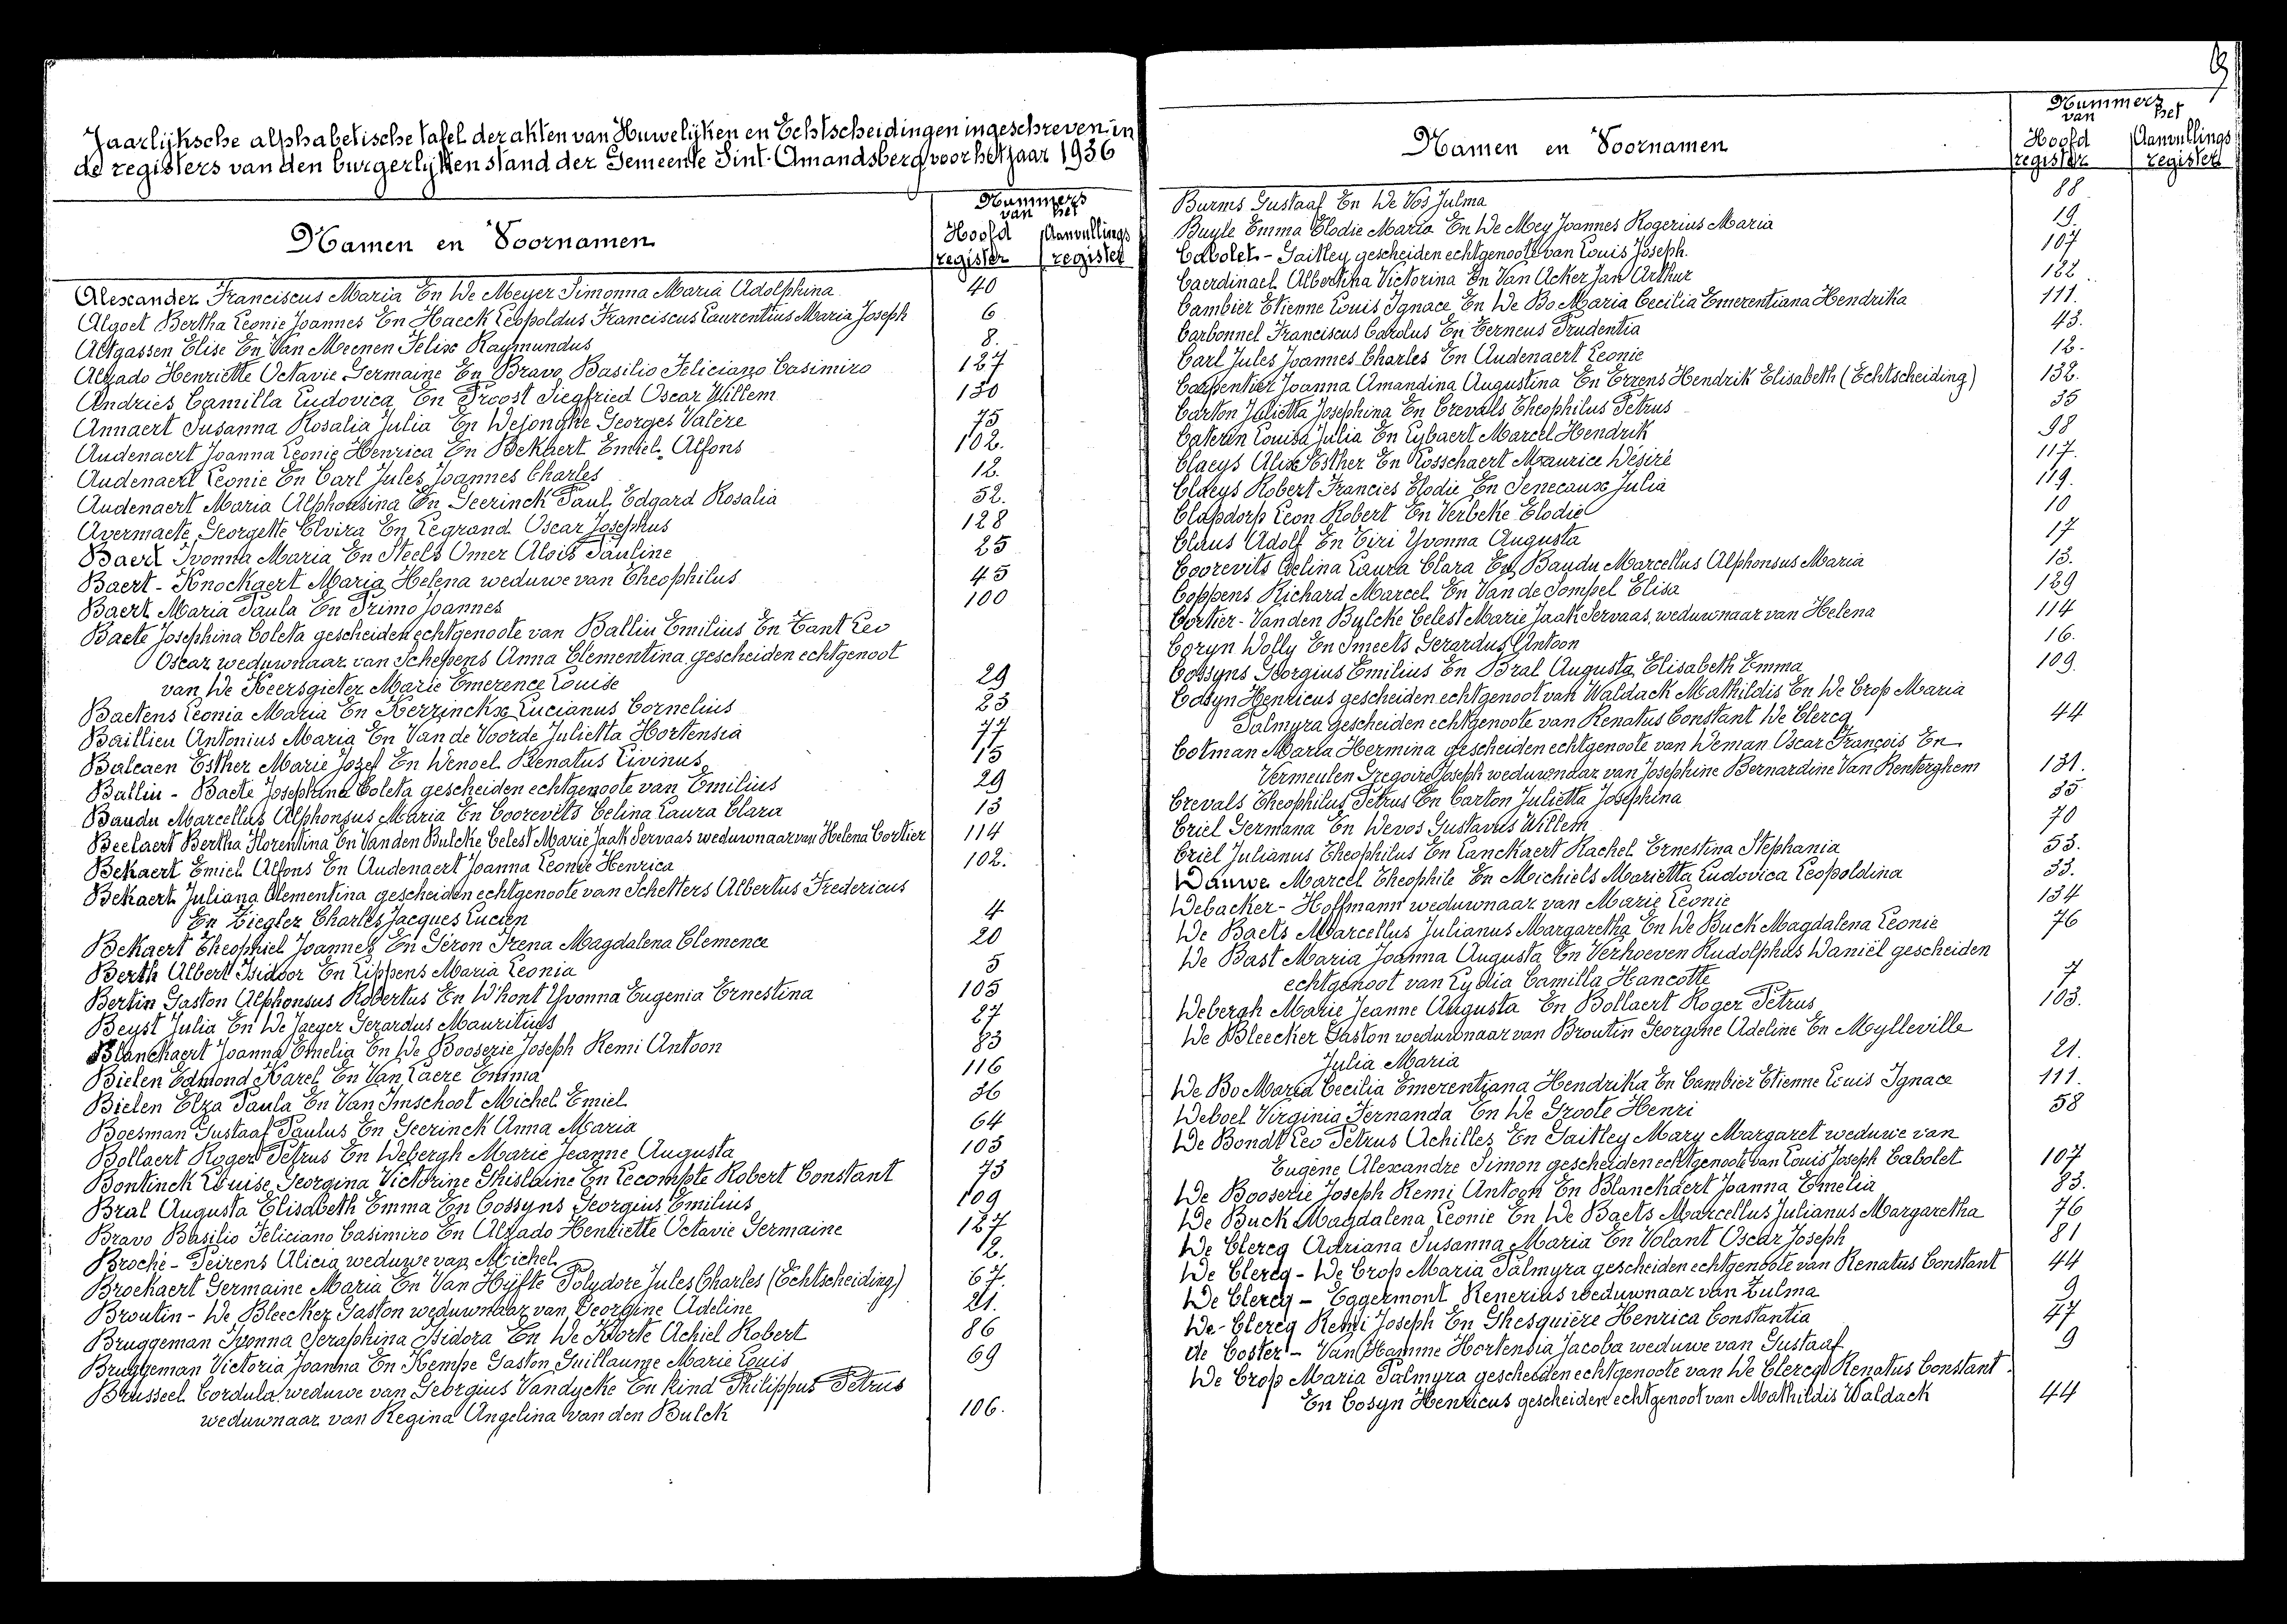 Jaarlijksche alphabetische tafel der akten van Huwelijken en Echtscheidingen ingeschreven in
de registers van den burgerlijken stand der Gemeente Sint-Amandsberg voor het jaar 1936
Namen en Voornamen
Nummers
van het
Hoofd register
Aanvullings register
Alexander Franciscus Maria En De Meyer Simonna Maria Adolphina 40
Algoet Bertha Leonie Joannes En Haeck Leopoldus Franciscus Laurentius Maria Joseph 6
Altgassen Elise En Van Meenen Felix Raymundus 8.
Alzado Henriette Octavie Germaine En Bravo Basilio Feliciano Casimiro 127
Andries Camilla Ludovica En Proost Siegfried Oscar Willem 130
Annaert Susanna Rosalia Julia En Dejonghe Georges Valère 75
Audenaert Joanna Leonie Henrica En Bekaert Emiel Alfons 102.
Audenaert Leonie En Carl Jules Joannes Charles 12.
Audenaert Maria Alphonsina En Geerinck Paul Edgard Rosalia 52.
Avermaete Georgette Elvira En Legrand Oscar Josephus 128
Baert Ivonna Maria En Steels Omer Alois Pauline 25
Baert - Knockaert Maria Helena weduwe van Theophilus 45
Baert Maria Paula En Primo Joannes 100
Baete Josephina Coleta gescheiden echtgenoote van Balliu Emilius En Tant Leo
Oscar weduwnaar van Schepens Anna Clementina gescheiden echtgenoot
van De Keersgieter Marie Emerence Louise 29
Baetens Leonia Maria En Kerrinckx Lucianus Cornelius 23
Baillieu Antonius Maria En Van de Voorde Julietta Hortensia 77
Balcaen Esther Marie Jozef En Denoel Renatus Livinus 15
Balliu - Baete Josephina Coleta gescheiden echtgenoote van Emilius 29
Baudu Marcellus Alphonsus Maria En Coorevits Celina Laura Clara 13
Beelaert Bertha Florentina En Van den Bulcke Celest Marie Jaak Servaas weduwnaar van Helena Cortier 114
Bekaert Emiel Alfons En Audenaert Joanna Leonie Henrica 102.
Bekaert Juliana Clementina gescheiden echtgenoote van Schetters Albertus Fredericus
En Ziegler Charles Jacques Lucien 4
Bekaert Theophiel Joannes En Séron Irena Magdalena Clemence 20
Berth Albert Isidoor En Lippens Maria Leonia 5
Bertin Gaston Alphonsus Robertus En D'hont Yvonna Eugenia Ernestina 105
Beyst Julia En De Jaeger Gerardus Mauritius 27
Blanckaert Joanna Emelia En De Booserie Joseph Remi Antoon 83
Bielen Edmond Karel En Van Laere Emma 116
Bielen Elza Paula En Van Imschoot Michel Emiel 36
Boesman Gustaaf Paulus En Geerinck Anna Maria 64
Bollaert Roger Petrus En Debergh Marie Jeanne Augusta 103
Bontinck Louise Georgina Victorine Ghislaine En Lecompte Robert Constant 73
Bral Augusta Elisabeth Emma En Cossyns Georgius Emilius 109
Bravo Basilio Feliciano Casimiro En Alzado Henriette Octavie Germaine 127
Broché - Peirens Alicia weduwe van Michel 12.
Broekaert Germaine Maria En Van Hijfte Polydore Jules Charles (Echtscheiding) 67.
Broutin - De Bleecker Gaston weduwnaar van Georgine Adeline 21.
Bruggeman Ivonna Seraphina Isidora En De Korte Achiel Robert 86
Bruggeman Victoria Joanna En Kempe Gaston Guillaume Marie Louis 69
Brusseel Cordula weduwe van Georgius Vandycke En Kind Philippus Petrus
weduwnaar van Regina Angelina van den Bulck 106.
Namen en Voornamen
Nummers
van het
Hoofd register
Aanvullings register
Burms Gustaaf En De Vos Julma 88
Buyle Emma Elodie Maria En De Mey Joannes Rogerius Maria 19.
Cabolet - Gaitley gescheiden echtgenoote van Louis Joseph. 107
Caerdinael Albertina Victorina En Van Acker Jan Arthur 122
Cambier Etienne Louis Ignace En De Bo Maria Cecilia Emerentiana Hendrika 111.
Carbonnel Franciscus Carolus En Terneus Prudentia 43.
Carl Jules Joannes Charles En Audenaert Leonie 12.
Carpentier Joanna Amandina Augustina En Errens Hendrik Elisabeth (Echtscheiding) 132.
Carton Julietta Josephina En Crevals Theophilus Petrus 35
Caterin Louisa Julia En Lybaert Marcel Hendrik 98
Claeys Alix Esther En Rosschaert Maurice Désiré 117.
Claeys Robert Francies Elodie En Senecaux Julia 119.
Clapdorp Leon Robert En Verbeke Elodie 10
Claus Adolf En Tiri Yvonna Augusta 17
Coorevits Celina Laura Clara En Baudu Marcellus Alphonsus Maria 13.
Coppens Richard Marcel En Van de Sompel Elisa 129
Cortier - Van den Bulcke Celest Marie Jaak Servaas, weduwnaar van Helena 114
Coryn Dolly En Smeets Gerardus Antoon 16.
Cossyns Georgius Emilius En Bral Augusta Elisabeth Emma 109.
Cosyn Henricus gescheiden echtgenoot van Waldack Mathildis En De Crop Maria
Palmyra gescheiden echtgenoote van Renatus Constant De Clercq 44
Cotman Maria Hermina gescheiden echtgenoote van Deman Oscar François En
Vermeulen Gregoire Joseph weduwnaar van Josephine Bernardine Van Renterghem 131.
Crevals Theophilus Petrus En Carton Julietta Josephina 35
Criel Germana En Devos Gustavus Willem 70
Criel Julianus Theophilus En Lanckaert Rachel Ernestina Stephania 53.
Dauwe Marcel Theophile En Michiels Marietta Ludovica Leopoldina 33.
Debacker - Hoffmann weduwnaar van Marie Leonie 134
De Baets Marcellus Julianus Margaretha En De Buck Magdalena Leonie 76
De Bast Maria Joanna Augusta En Verhoeven Rudolphus Daniël gescheiden
echtgenoot van Lydia Camilla Hancotte 7
Debergh Marie Jeanne Augusta En Bollaert Roger Petrus 103.
De Bleecker Gaston weduwnaar van Broutin Georgine Adeline En Mylleville
Julia Maria 21.
De Bo Maria Cecilia Emerentiana Hendrika En Cambier Etienne Louis Ignace 111.
Deboel Virginia Fernanda En De Groote Henri 58
De Bondt Leo Petrus Achilles En Gaitley Mary Margaret weduwe van
Eugène Alexandre Simon gescheiden echtgenoote van Louis Joseph Cabolet 107
De Booserie Joseph Remi Antoon En Blanckaert Joanna Emelia 83.
De Buck Magdalena Leonie En De Baets Marcellus Julianus Margaretha 76
De Clercq Adriana Susanna Maria En Volant Oscar Joseph 81
De Clercq - De Crop Maria Palmyra gescheiden echtgenoote van Renatus Constant 44
De Clercq - Eggermont Renerius weduwnaar van Zulma 9
De Clercq Remi Joseph En Ghesquière Henrica Constantia 47
de Coster - Van Hamme Hortensia Jacoba weduwe van Gustaaf 9
De Crop Maria Palmyra gescheiden echtgenoote van De Clercq Renatus Constant
En Cosyn Henricus gescheiden echtgenoot van Mathildis Waldack 44